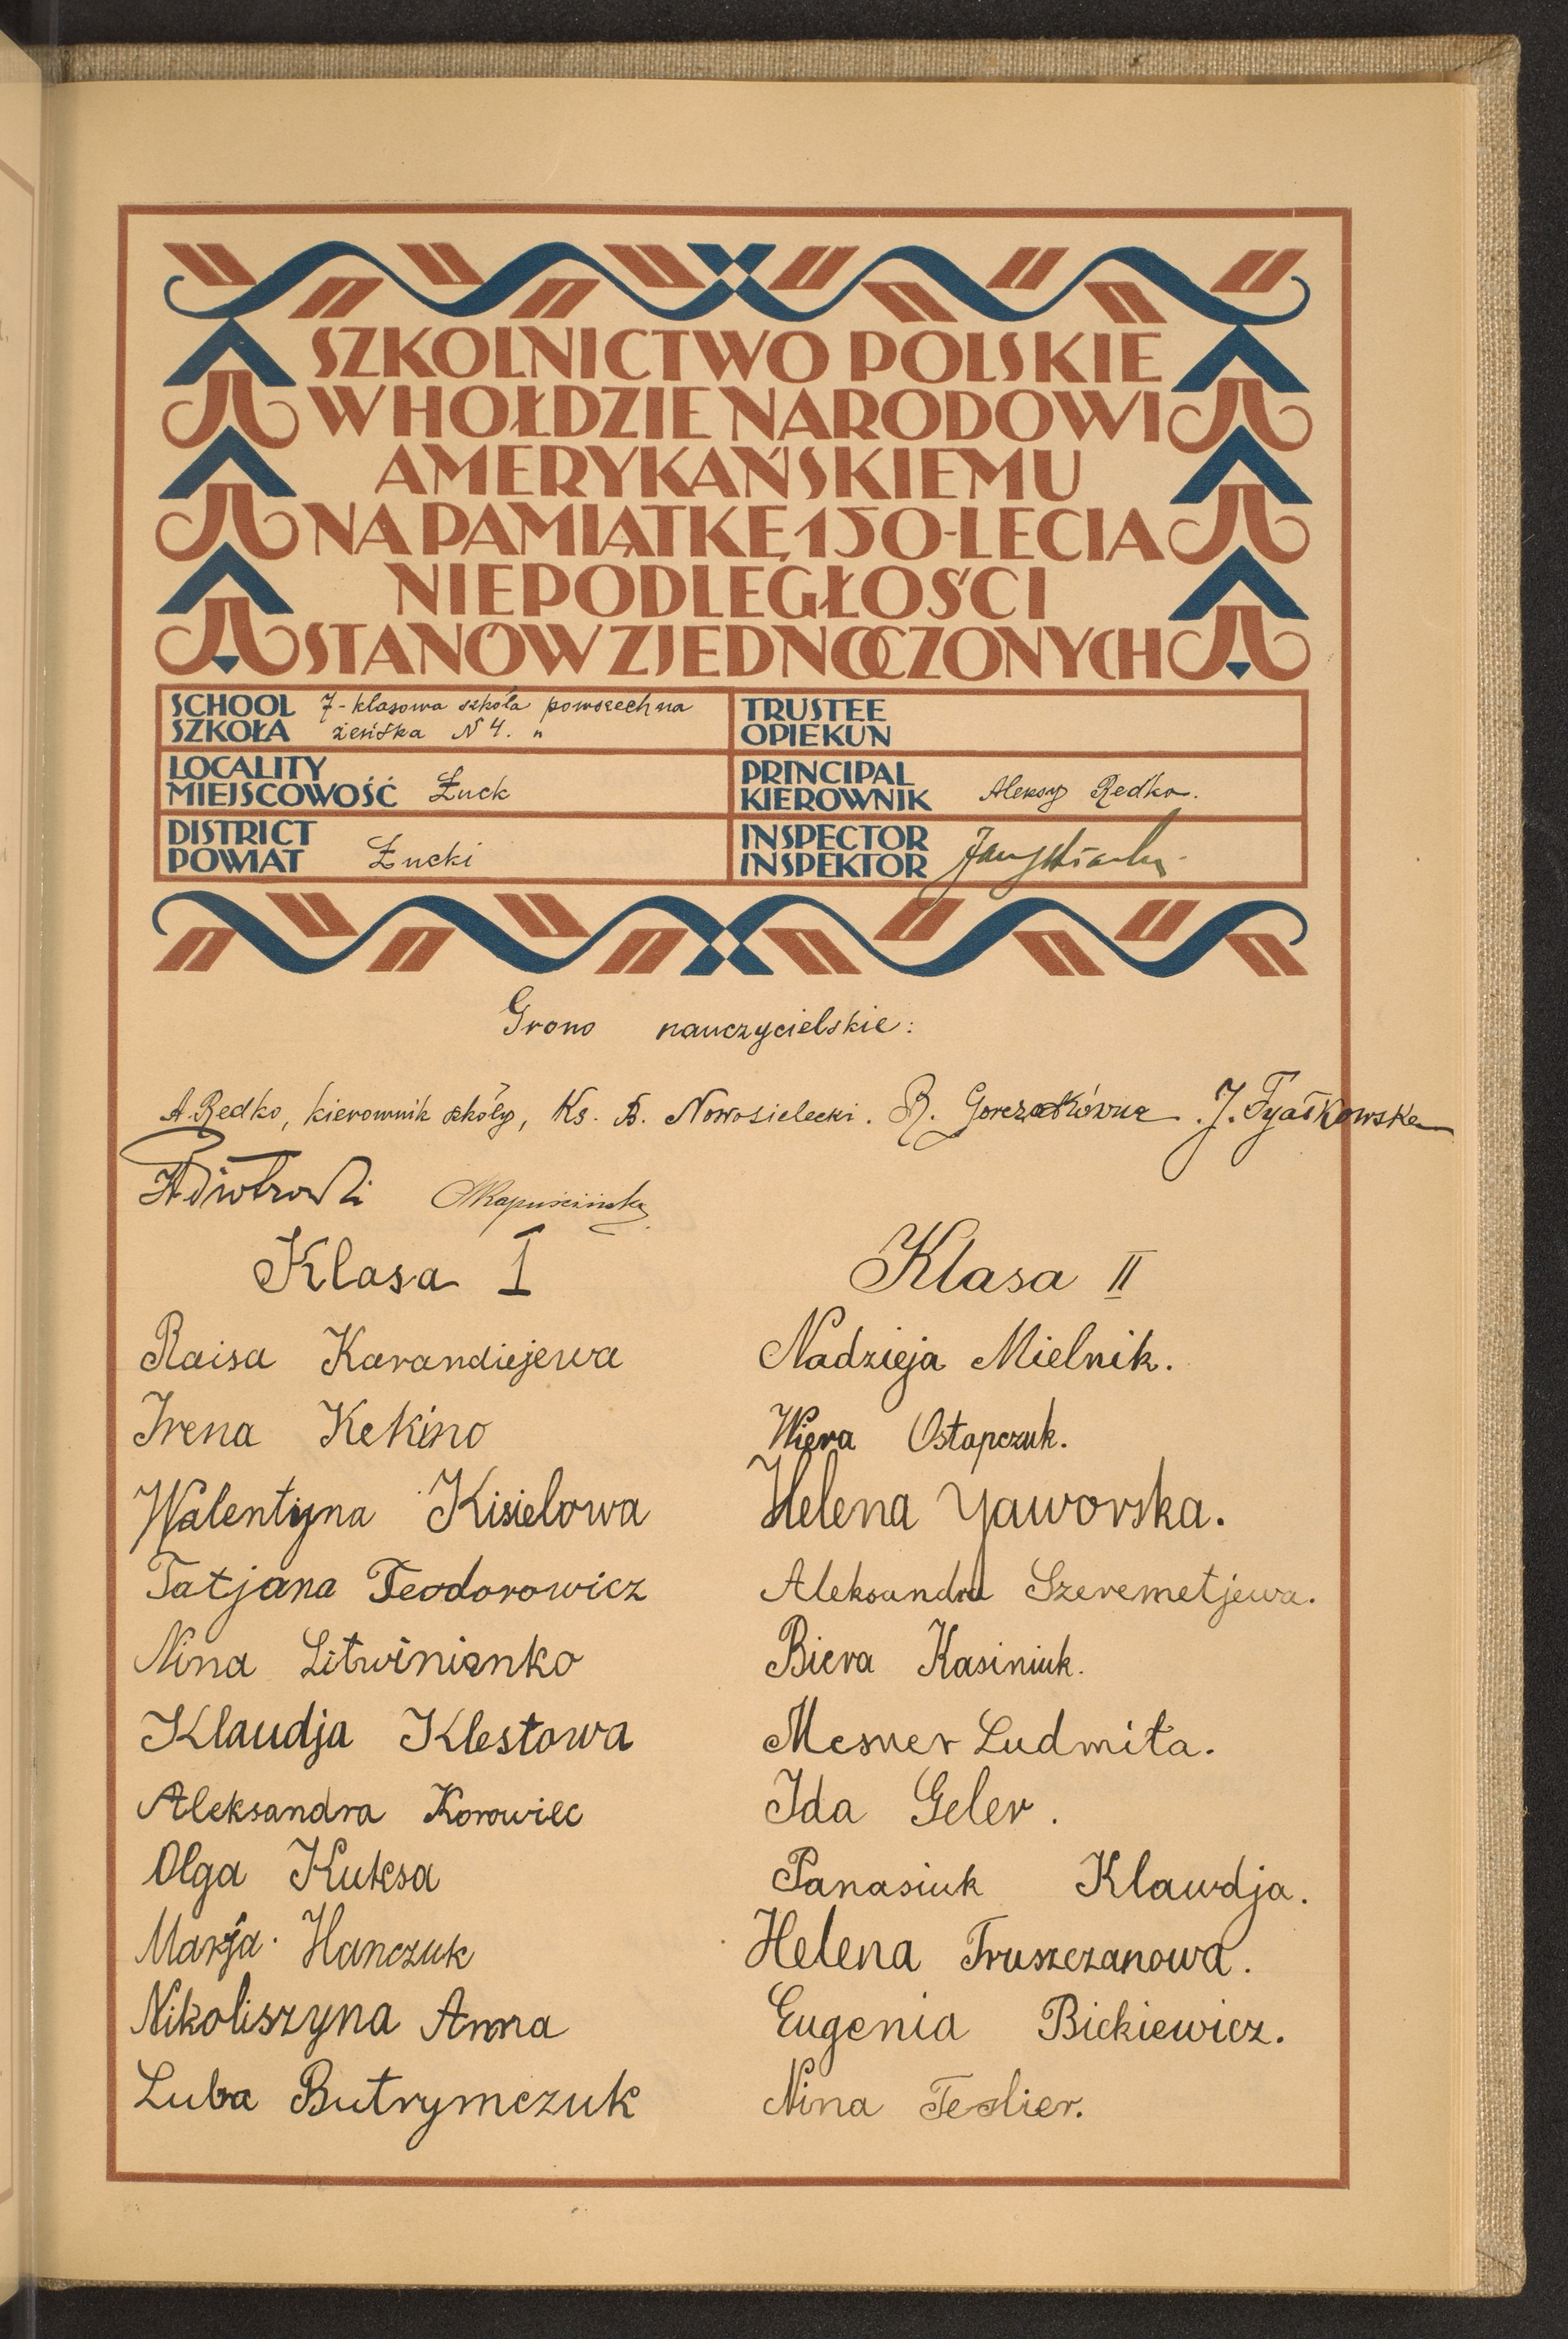 SZKOLNICTWO POLSKIE
W HOŁDZIE NARODOWI
AMERYKAŃSKIEMU
NA PAMIĄTKĘ 150-LECIA
NIEPODLEGŁOŚCI
STANÓW ZJEDNOCZONYCH
SCHOOL
SZKOŁA
7-klasowa szkoła powszechna
żeńska N 4. "
TRUSTEE
OPIEKUN
LOCALITY
MIEJSCOWOŚĆ Łuck
PRINCIPAL
KIEROWNIK Aleksy Redko.
DISTRICT
POWIAT Łucki
INSPECTOR
INSPEKTOR
Grono nauczycielskie:
A. Redko, kierownik szkoły, Ks. B. Nowosielecki. R. Gorczakówna. J. Fyałkowska
Klasa I
Raisa Karandiejewa
Irena Kekino
Walentyna Kisielowa
Tatjana Teodorowicz
Nina Litwinienko
Klaudja Klestowa
Aleksandra Korowiec
Olga Kutesa
Marja Hanczuk
Nikoliszyna Anna
Luba Butrymczuk
Klasa II
Nadzieja Mielnik.
Wiera Ostapczuk.
Helena Yaworska.
Aleksandra Szeremetjewa.
Biera Kasiniuk.
Mesner Ludmiła.
Ida Geler.
Panasiuk Klawdja.
Helena Truszczanowa.
Eugenia Bickiewicz.
Nina Teslier.